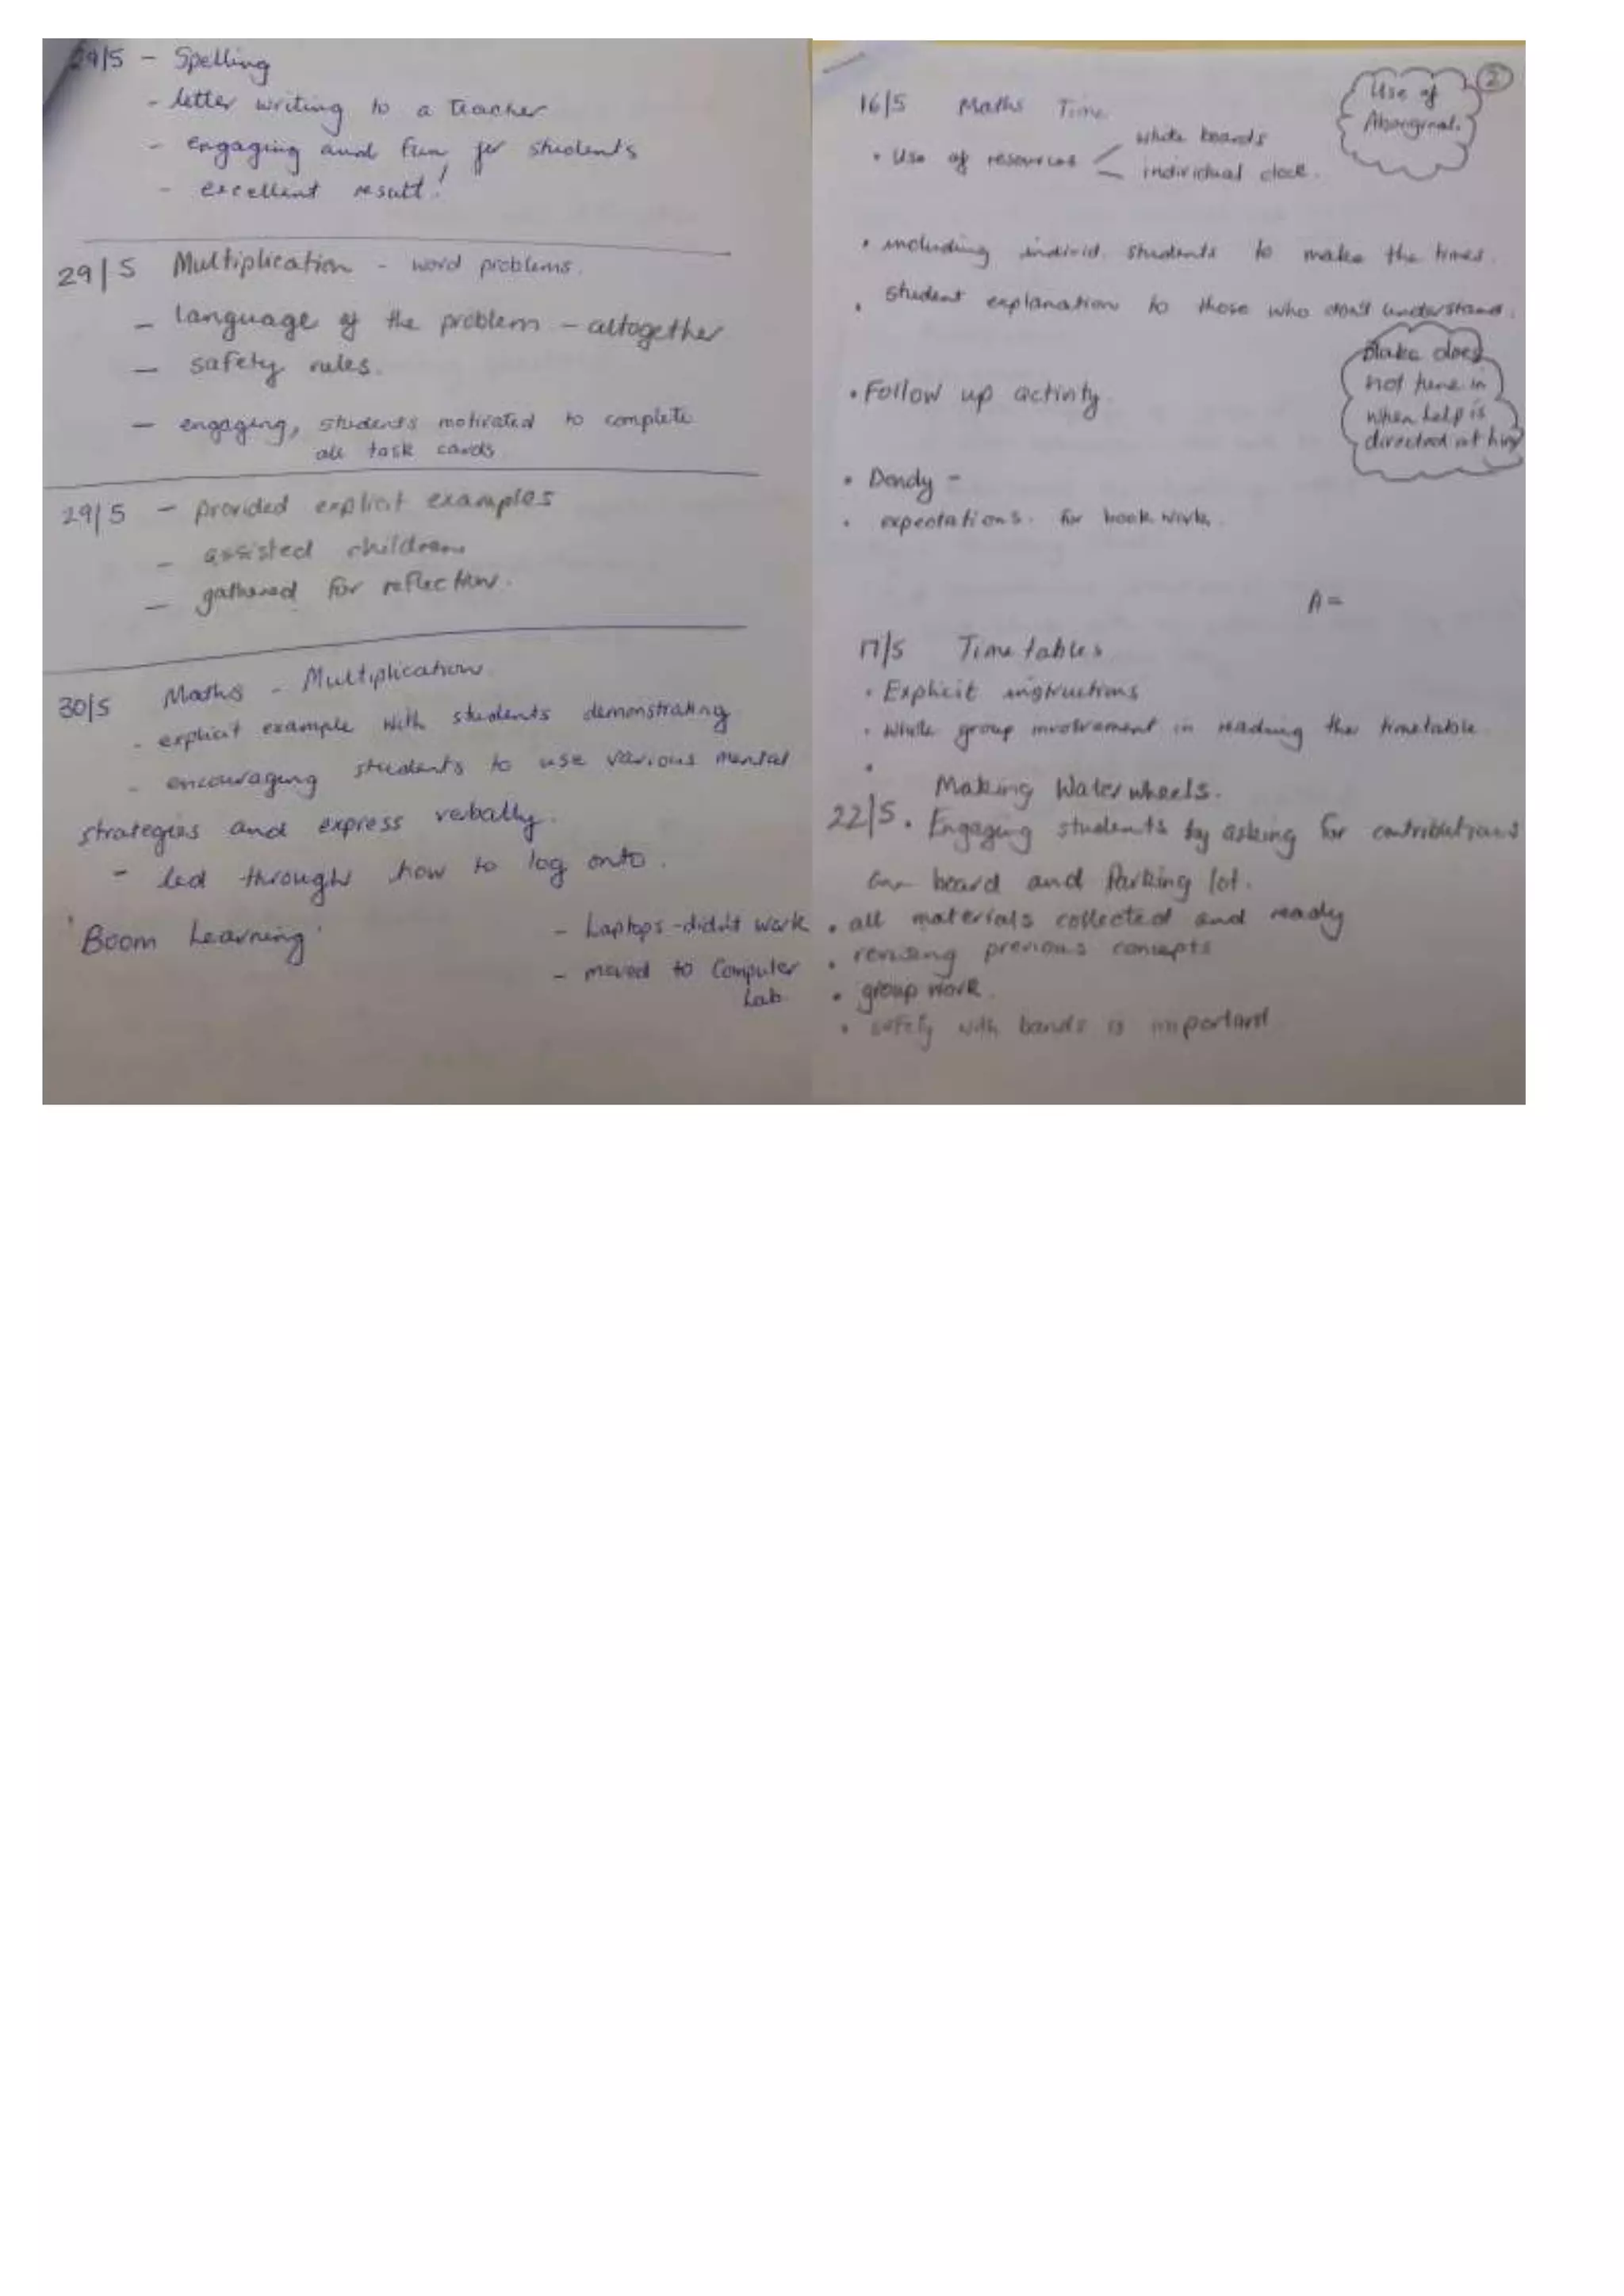 29/5 - Spelling
- letter writing to a teacher
- engaging and fun for students
- excellent result!
29/5 Multiplication - word problems.
- language of the problem - altogether
- safety rules.
- engaging, students motivated to complete
all task cards
29/5 - provided explicit examples
- assisted children
- gathered for reflection.
30/5 Maths - Multiplication
- explicit example with students demonstrating
- encouraging students to use various mental
strategies and express verbally.
- led through how to log onto.
'Boom Learning'
- Laptops - didn't work
- moved to Computer
Lab
2
Use of
Aboriginal.
16/5 Maths Time
white boards
• Use of resources <
individual clock.
• including individ. students to make the times.
• student explanation to those who don't understand.
Blake does
not tune in
when help is
directed at him
• Follow up activity
• Dendy -
• expectations. for book work.
A =
17/5 Timetables
• Explicit instructions
• whole group involvement in reading the timetable
•
Making Waterwheels.
22/5 • Engaging students by asking for contributions
board and Parking lot.
• all materials collected and ready
• revising previous concepts
• group work.
• safety with bands is important